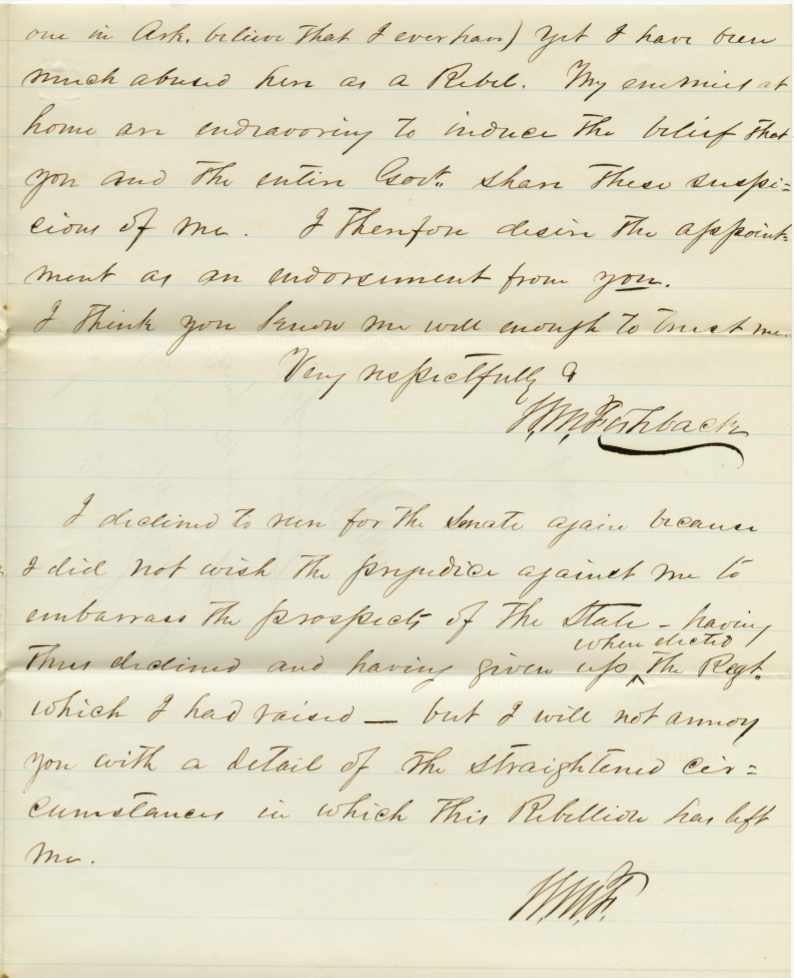 one in Ark. believe that I ever have) yet I have been
much abused here as a Rebel. My enemies at
home are endeavoring to induce the belief that
you and the entire Govt. share these suspi=
cions of me. I therefore desire the appoint=
ment as an endorsement from you.
I think you know me well enough to trust me.
Very respectfully &
W.M. Fishback
I declined to run for the Senate again because
I did not wish the prejudice against me to
embarrass the prospects of the State – having
when elected
thus declined and having given up ‸ the Regt.
which I had raised — but I will not annoy
you with a detail of the straightened cir=
cumstances in which this Rebellion has left
me.
W.M.F.